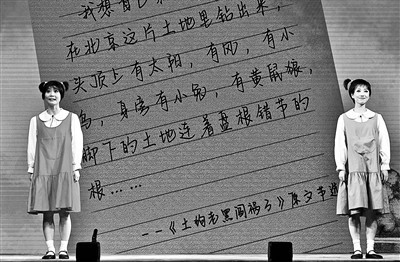 我想自己
在北京这片土地里钻出来，
头顶上有太阳，有风，有小
鸟，身旁有小兔，有黄鼠狼，
脚下的土地连着盘根错节的
根……
——《土的老黑闯祸了》原文节选